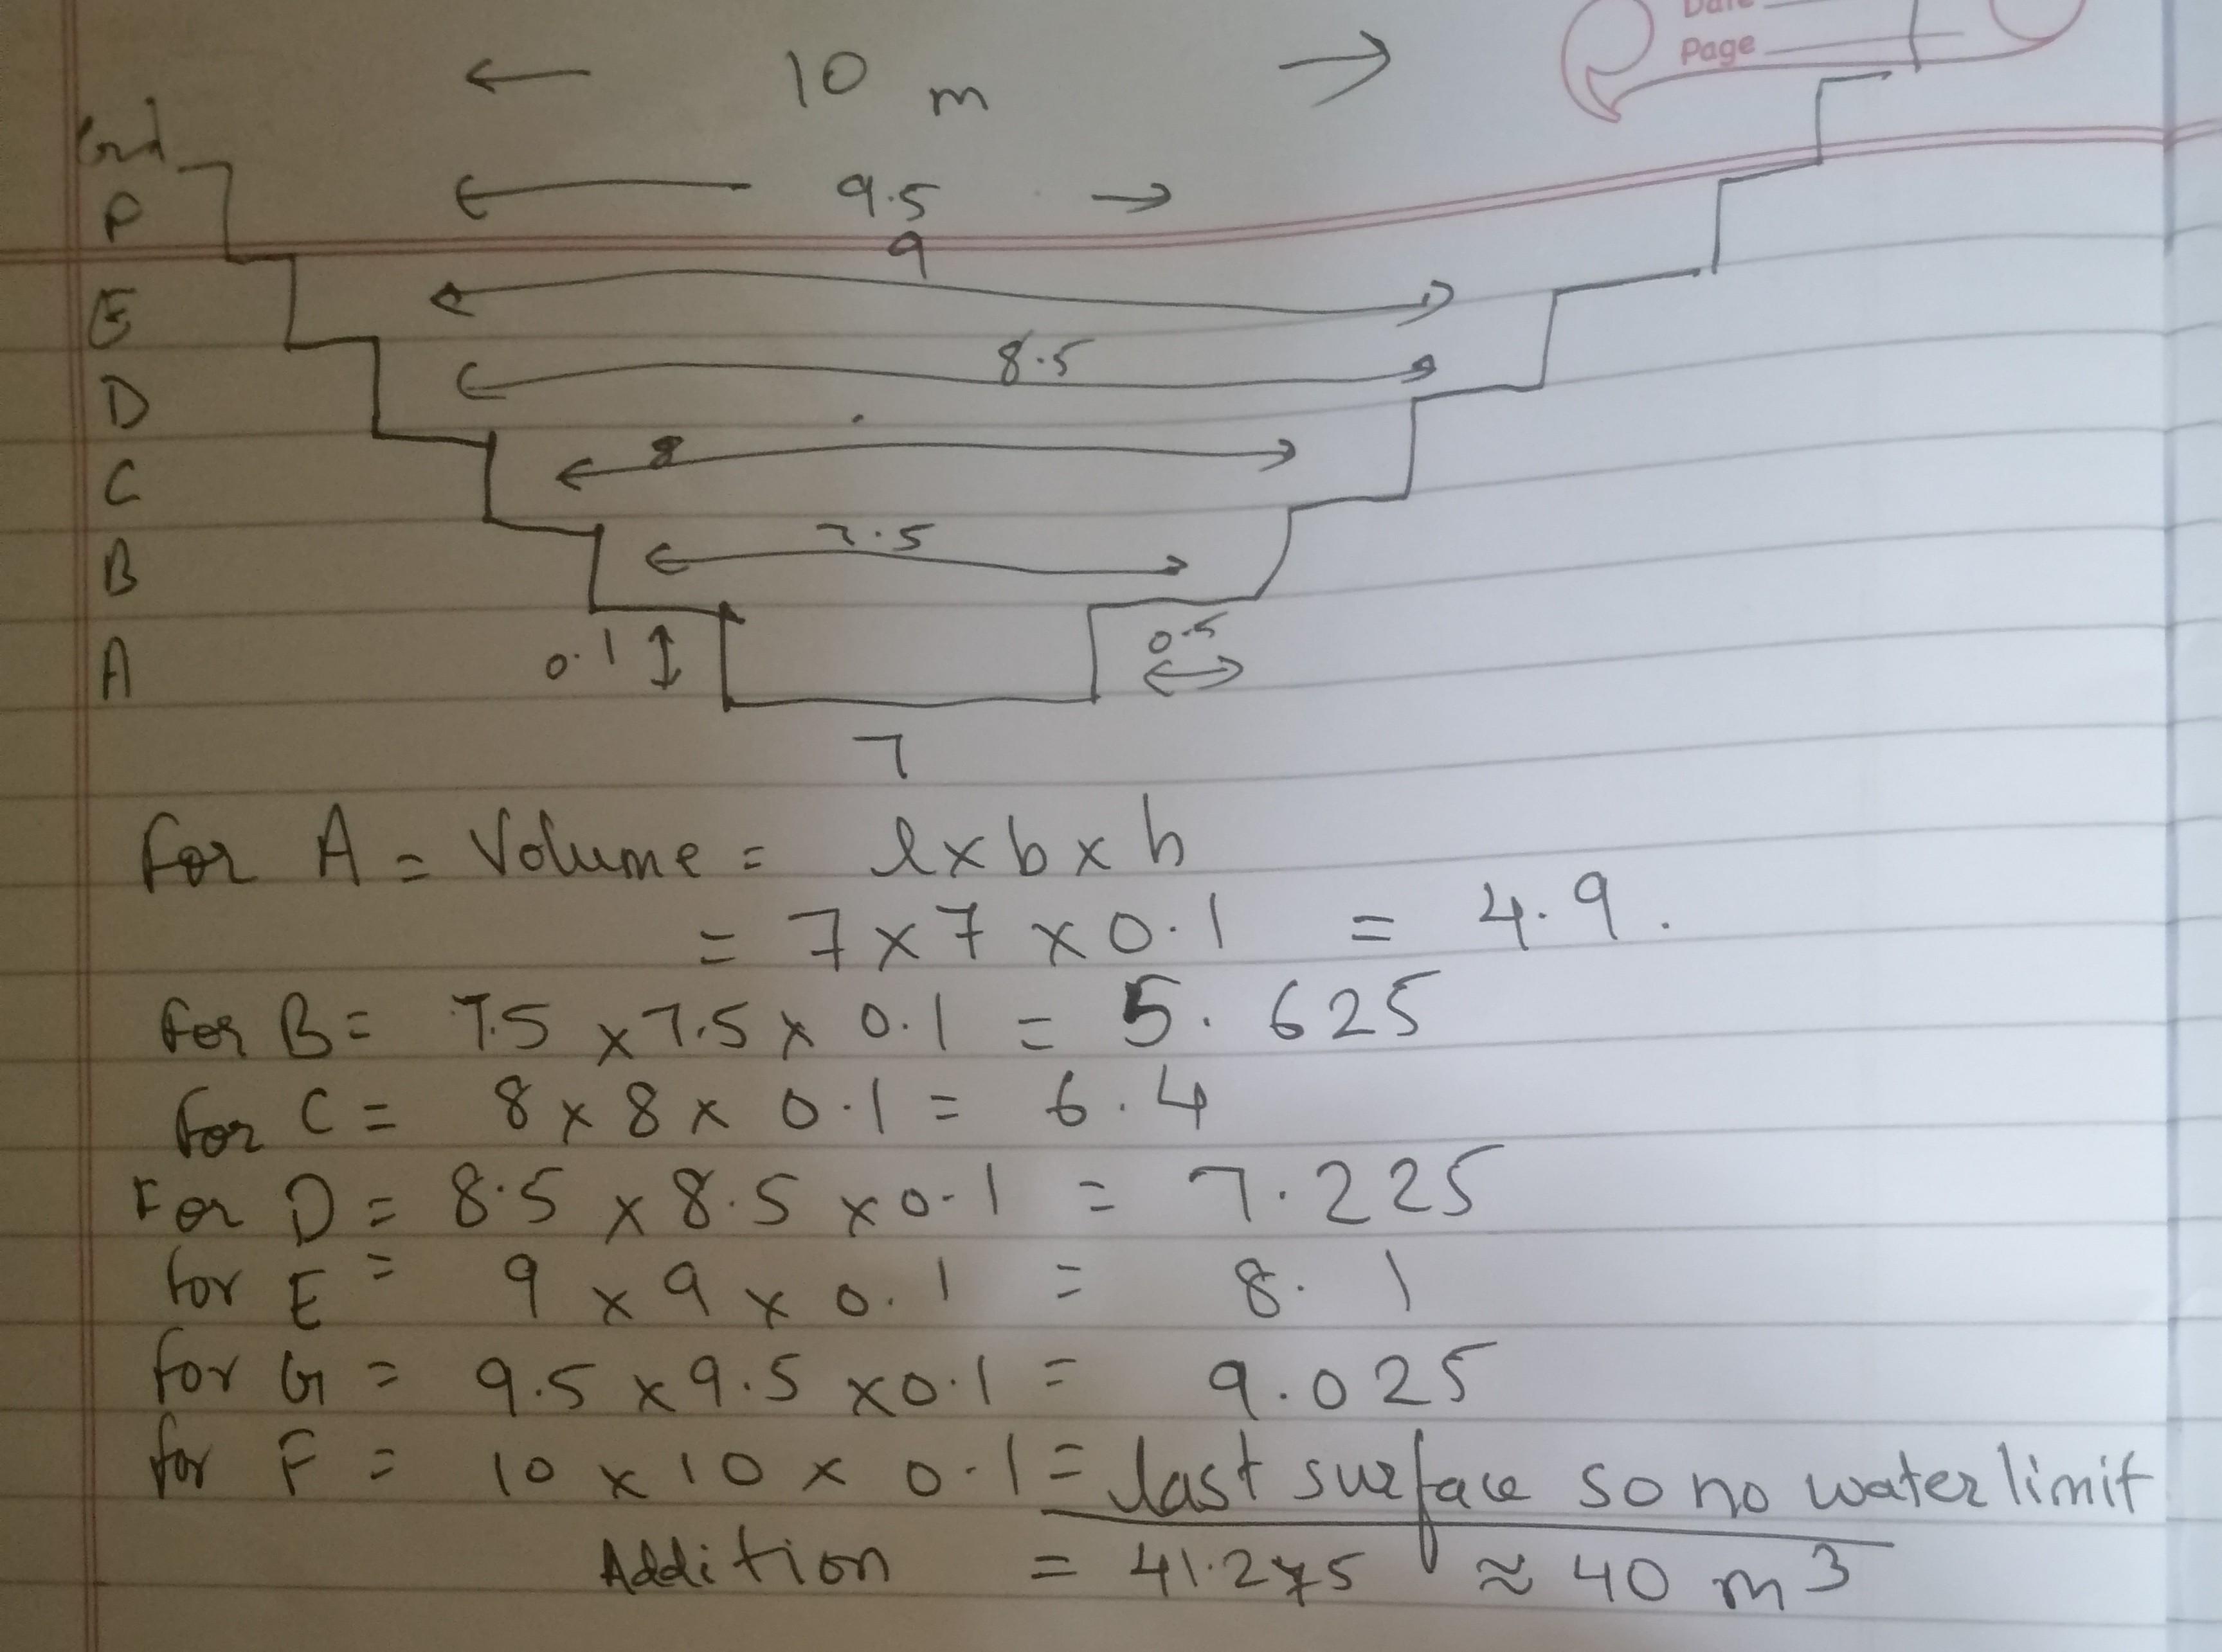 Date
Page
10 m
Grd
9.5
P
9
E
8.5
D
8
C
7.5
B
0.1
0.5
A
7
For A = Volume = l x b x h
= 7 x 7 x 0.1 = 4.9.
For B = 7.5 x 7.5 x 0.1 = 5.625
For C = 8 x 8 x 0.1 = 6.4
For D = 8.5 x 8.5 x 0.1 = 7.225
for E = 9 x 9 x 0.1 = 8.1
for G = 9.5 x 9.5 x 0.1 = 9.025
for F = 10 x 10 x 0.1 = last surface so no water limit
Addition = 41.275 ≈ 40 m³